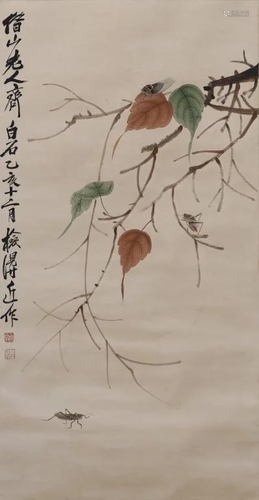 借山老人齊
白石乙亥十二月檢得近作